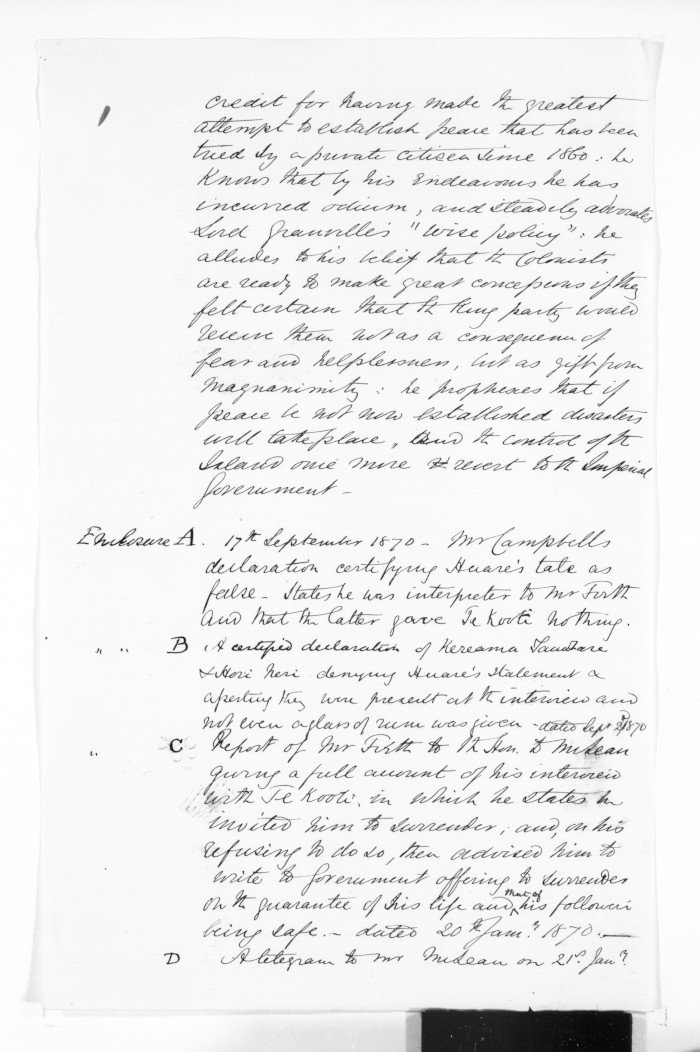 credit for having made th greatest
attempt to establish peace that has been
tried by a private citizen since 1860: he
knows that by his Endeavours he has
incurred odium, and steadily advocates
Lord Granville's "wise policy": he
alludes to his belief that th Colonists
are ready to make great concessions if they
felt certain that th King party would
receive them not as a consequence of
fear and helplessness, but as gift from
magnanimity: he prophesies that if
peace be not now established disasters
will take place, and th control of th
Island once more revert to th Imperial
Government -
Enclosure A. 17th September 1870 - Mr Campbells
declaration certifying Huare's tale as
false - States he was interpreter to Mr Firth
and that the latter gave Te Kooti nothing.
" " B A certified declaration of Kereama
& Hori Neri denying Huare's Statement &
asserting they were present at th interview and
not even a glass of rum was given - dated Sept 1870
" C Report of Mr Firth to th Hon. D McLean
giving a full account of his interview
with Te Kooti, in which he states he
invited him to surrender; and, on his
refusing to do so, then advised him to
write to Government offering to surrender
on th guarantee of his life and that of his followers
being safe. - dated 20th Jany 1870. -
D A telegram to Mr McLean on 21st Jany